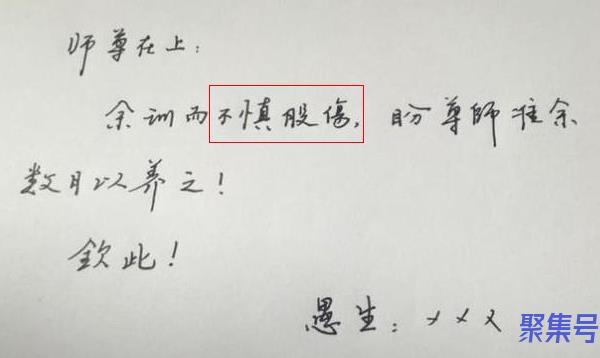 师尊在上：
余训而不慎股傷，盼尊師准余
数月以养之！
欽此！
愚生：×××
聚集号